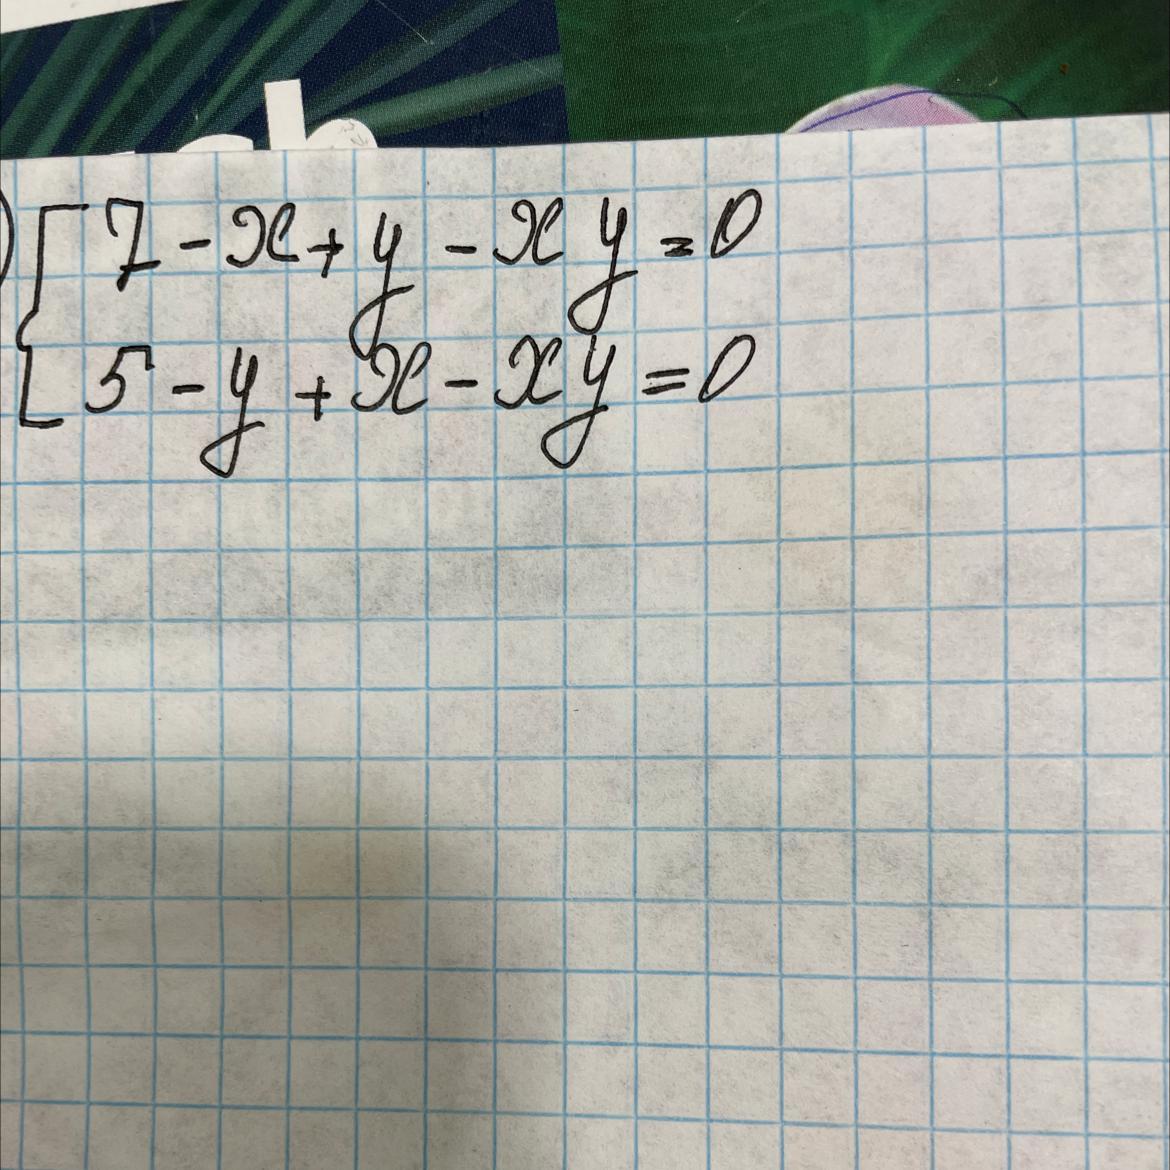 7 - x + y - xy = 0
5 - y + x - xy = 0